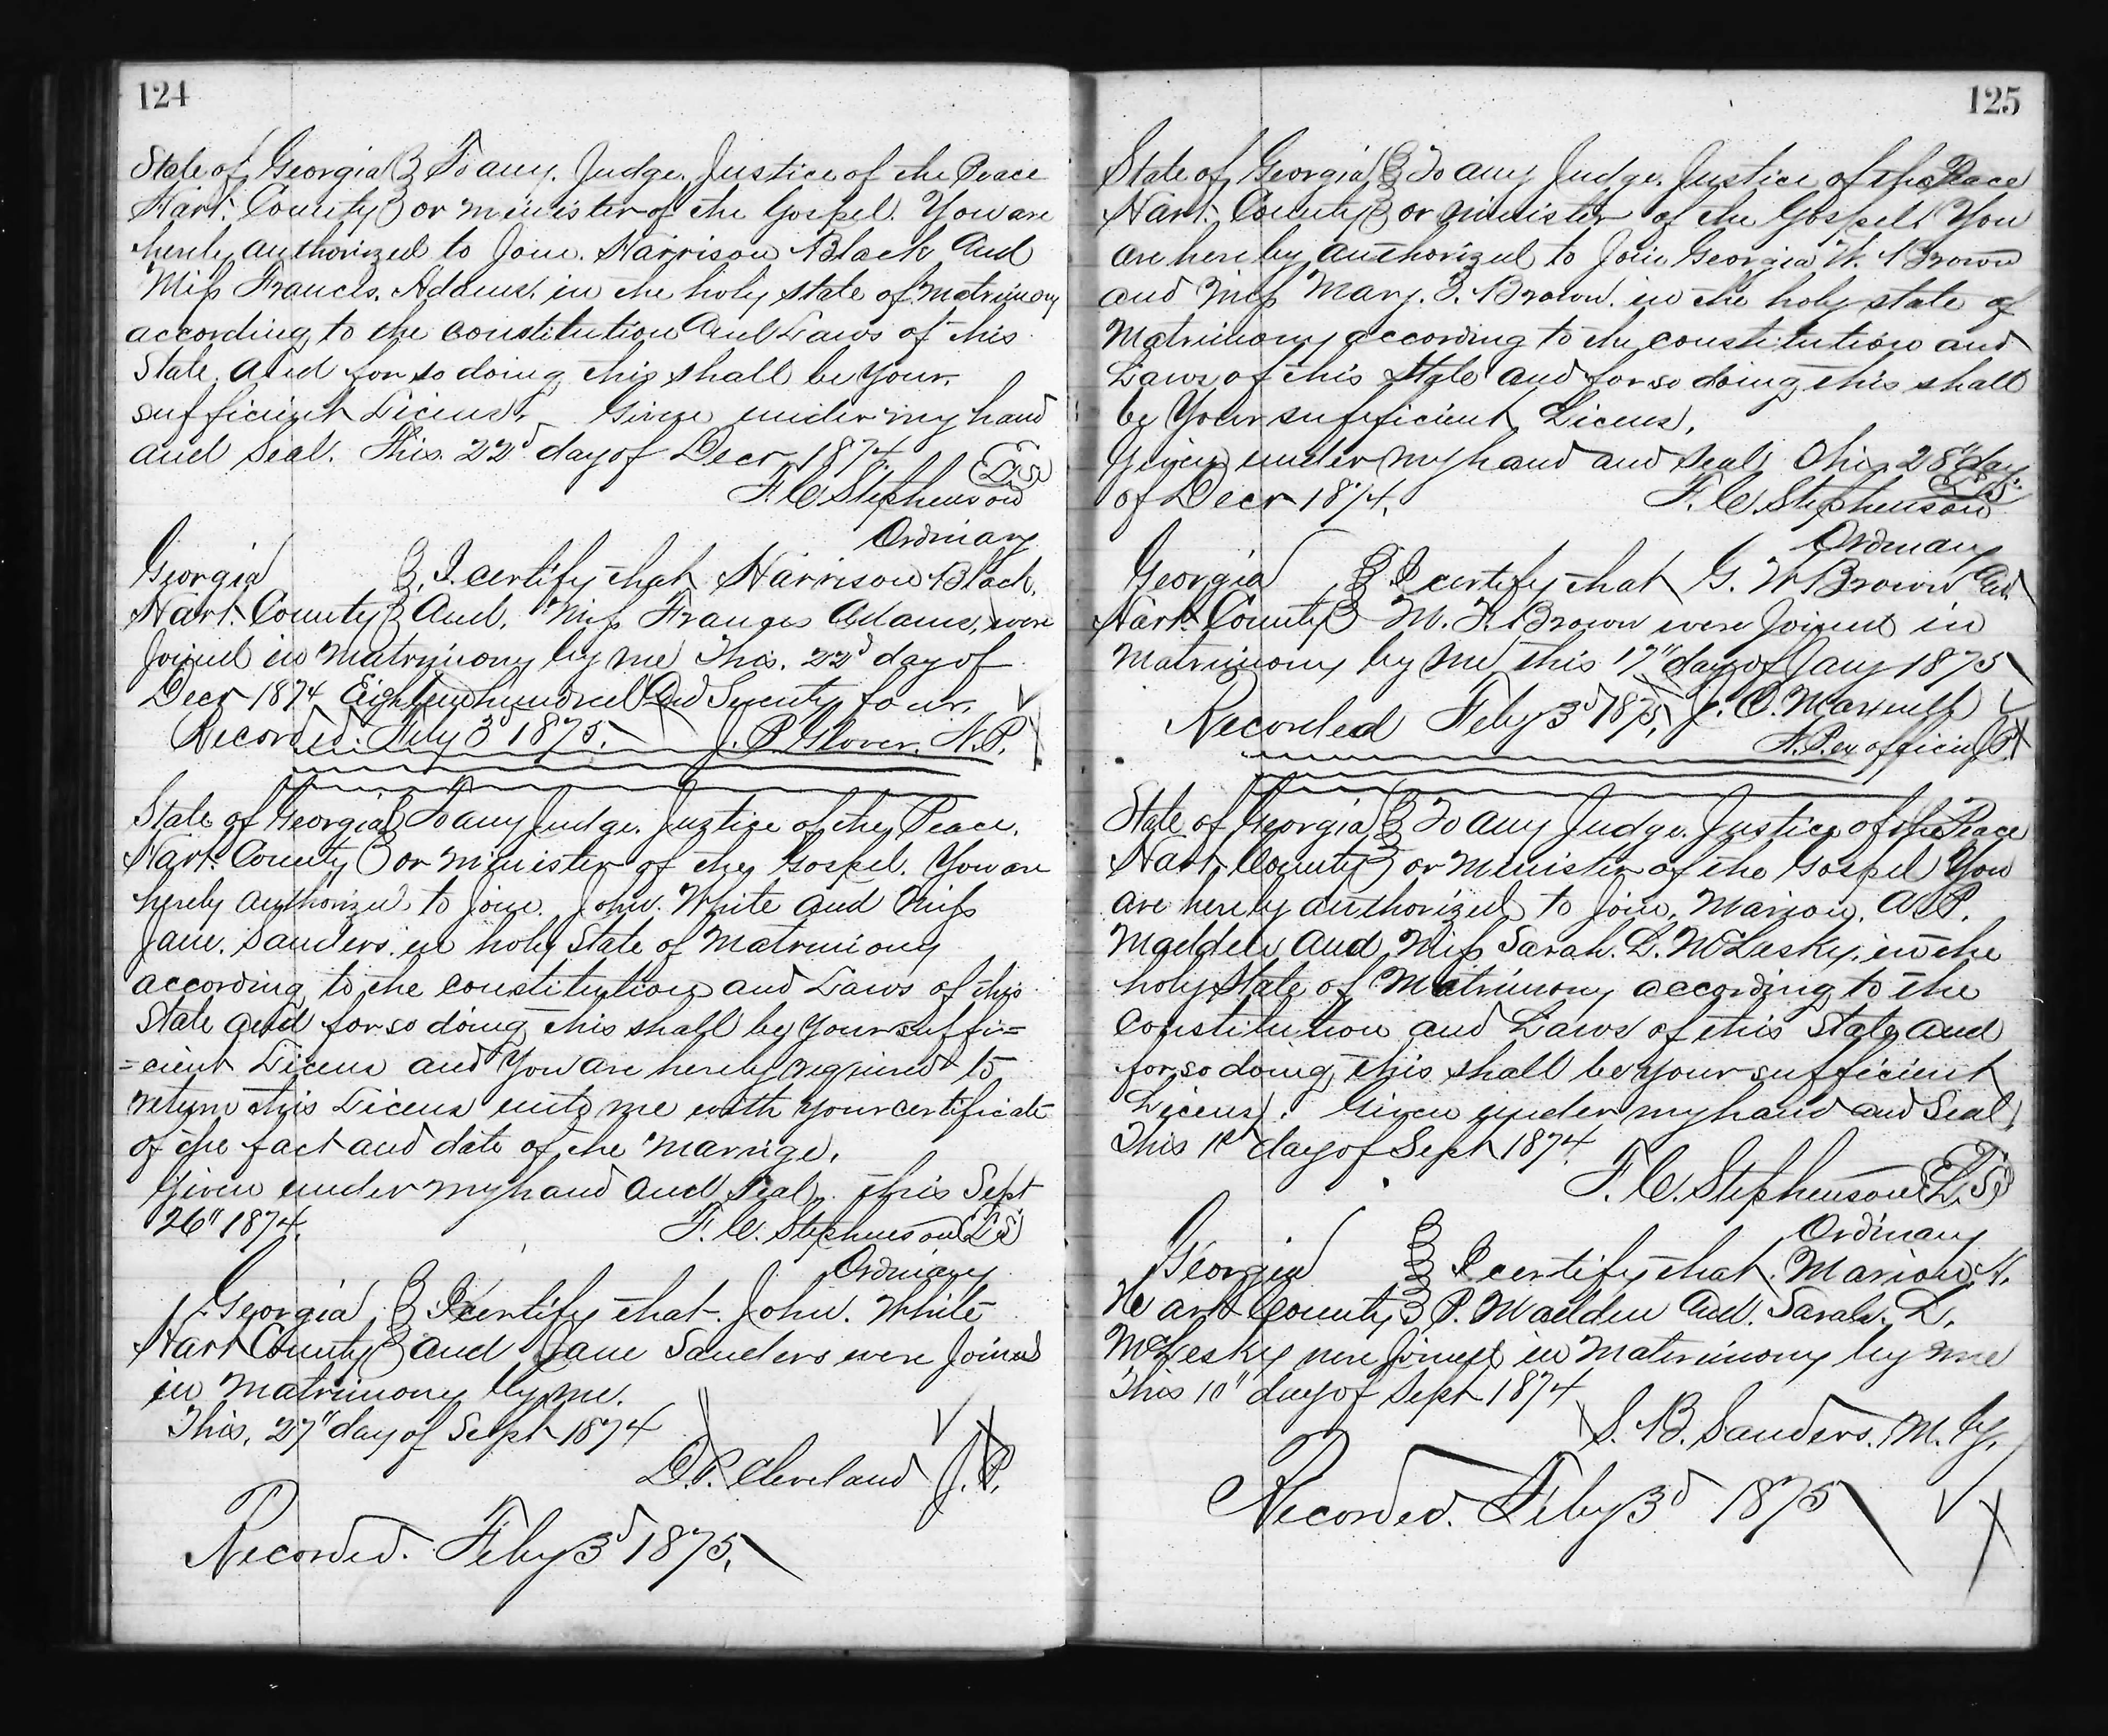 124
State of Georgia } To any. Judge. Justice of the Peace
Hart. County } or minister of the Gospel. You are
hereby authorized to Join. Harrison Black and
Miss Francis. Adams. in the holy state of Matrimony
according to the constitution and Laws of this
State and for so doing this shall be Your
sufficient Licens. Given under my hand
and seal. This. 22d day of Decr 1874.
F. C. Stephenson L.S.
Ordinary
Georgia } I. certify that Harrison Black.
Hart. County } And. Miss Francis Adams, were
Joined in Matrimony by me This. 22d day of
Decr 1874 Eighteen hundred and Seventy four.
Recorded. Feby 3d 1875. J. P. Glover. N.P.
State of Georgia } To any Judge. Justice of the Peace.
Hart. County } or minister of the Gospel. You are
hereby authorized to Join. John. White and Miss
Jane. Sanders. in holy State of Matrimony
according to the constitution and Laws of this
State and for so doing this shall be Your suffi=
=cient Licens and You are hereby required to
return this Licens unto me with your certificate
of the fact and date of the Marrige.
Given under my hand and Seal. This Sept
26" 1874. F. C. Stephenson L.S.
Ordinary
Georgia } I certify that John. White
Hart County } and Jane Sanders were Joined
in Matrimony by me.
This, 27" day of Sept 1874
D. P. Cleveland J. P.
Recorded. Feby 3d 1875.
125
State of Georgia } To any Judge. Justice of the Peace
Hart. County } or Minister of the Gospel. You
are hereby authorized to Join Georgia W. Brown
and Miss Mary. F. Brown. in the holy state of
Matrimony according to the constitution and
Laws of this State and for so doing this shall
be Your sufficient Licens.
Given under my hand and seal This 28" day
of Decr 1874. F. C. Stephenson L.S.
Ordinary
Georgia } I certify that G. W Brown and
Hart. County } M. F. Brown were Joined in
Matrimony by Me this 17" day of Jany 1875
Recorded Feby 3d 1875. J. O. Maxwell
N. P. ex officio J P
State of Georgia } To any Judge. Justice of the Peace
Hart. County } or Minister of the Gospel You
are hereby authorized to Join. Marion. A. P.
Madden and Miss Sarah. L. McLesky. in the
holy State of Matrimony according to the
Constitution and Laws of this State and
for so doing this shall be Your sufficient
Licens. Given under my hand and Seal
This 1st day of Sept 1874.
F. C. Stephenson L.S.
Ordinary
Georgia } I certify that. Marion. A.
Hart County } P. Madden and. Sarah. L.
McLesky were Joined in Matrimony by me
This 10" day of Sept 1874
S. B. Sanders. M. G.
Recorded. Feby 3d 1875